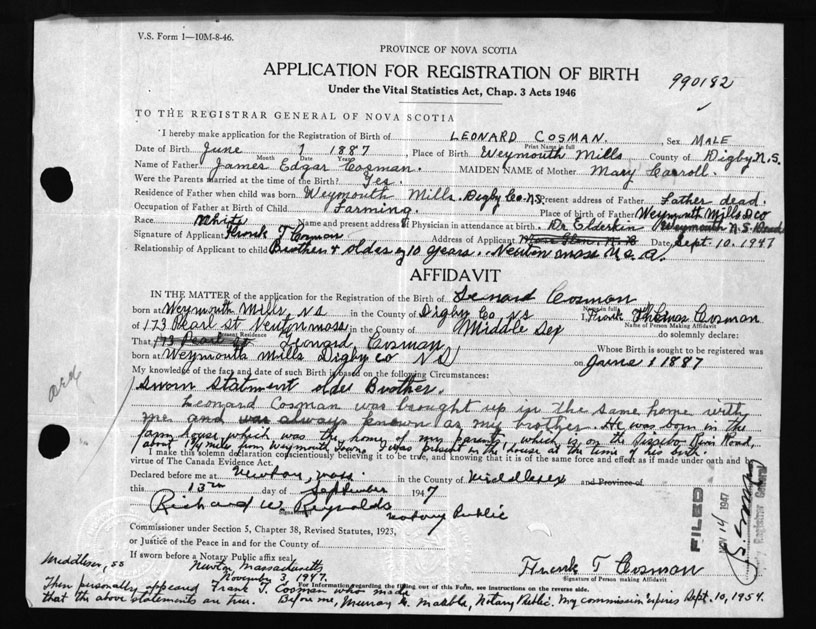 V.S. Form 1—10M-8-46.
PROVINCE OF NOVA SCOTIA
APPLICATION FOR REGISTRATION OF BIRTH
990182
Under the Vital Statistics Act, Chap. 3 Acts 1946
TO THE REGISTRAR GENERAL OF NOVA SCOTIA
I hereby make application for the Registration of Birth of LEONARD COSMAN. Sex MALE
Print Name in full
Date of Birth June 1 1887, Place of Birth Weymouth Mills County of Digby N.S.
Month Date Year
Name of Father James Edgar Cosman. MAIDEN NAME of Mother Mary Carroll.
Were the Parents married at the time of the Birth? Yes.
Residence of Father when child was born Weymouth Mills. Digby Co. N.S. Present address of Father Father dead.
Occupation of Father at Birth of Child Farming Place of birth of Father Weymouth Mills D co
Race White Name and present address of Physician in attendance at birth. Dr Elderkin Weymouth N.S. Dead
Signature of Applicant Frank T Cosman Address of Applicant Date Sept. 10. 1947
Relationship of Applicant to child Brother & older by 10 years. Newton Mass U.S.A.
AFFIDAVIT
IN THE MATTER of the application for the Registration of the Birth of Leonard Cosman
Name in full
born at Weymouth Mills, NS in the County of Digby Co NS I, Frank Thomas Cosman
Name of Person Making Affidavit
of 173 Pearl st Newton mass in the County of Middle Sex do solemnly declare:
Present Residence
That 173 Pearl st Leonard Cosman Whose Birth is sought to be registered was
born at Weymouth Mills Digby co NS on June 1 1887
My knowledge of the fact and date of such Birth is based on the following Circumstances:
Sworn Statment older Brother.
Leonard Cosman was brought up in the same home with
me and was always known as my brother. He was born in the
farm house, which was the home of my parents, which is on the Sissibo River Road,
about 1/4 mile from Weymouth town. I was present in the house at the time of his birth.
I make this solemn declaration conscientiously believing it to be true, and knowing that it is of the same force and effect as if made under oath and by
virtue of The Canada Evidence Act.
Declared before me at Newton, Mass in the County of Middlesex and Province of
this 13th day of September 1947
Richard W. Reynolds
Signature
Notary Public
Commissioner under Section 5, Chapter 38, Revised Statutes, 1923,
or Justice of the Peace in and for the County of
If sworn before a Notary Public affix seal.
Frank T Cosman
Signature of Person making Affidavit
FILED
NOV 14 1947
Registrar General
Middlesex, ss Newton Massachusetts
November 3, 1947.
For Information regarding the filling out of this Form, see instructions on the reverse side.
Then personally appeared Frank T. Cosman who made
that the above statements are true. Before me, Murray Notary Public. My commission expires Sept. 10, 1954.